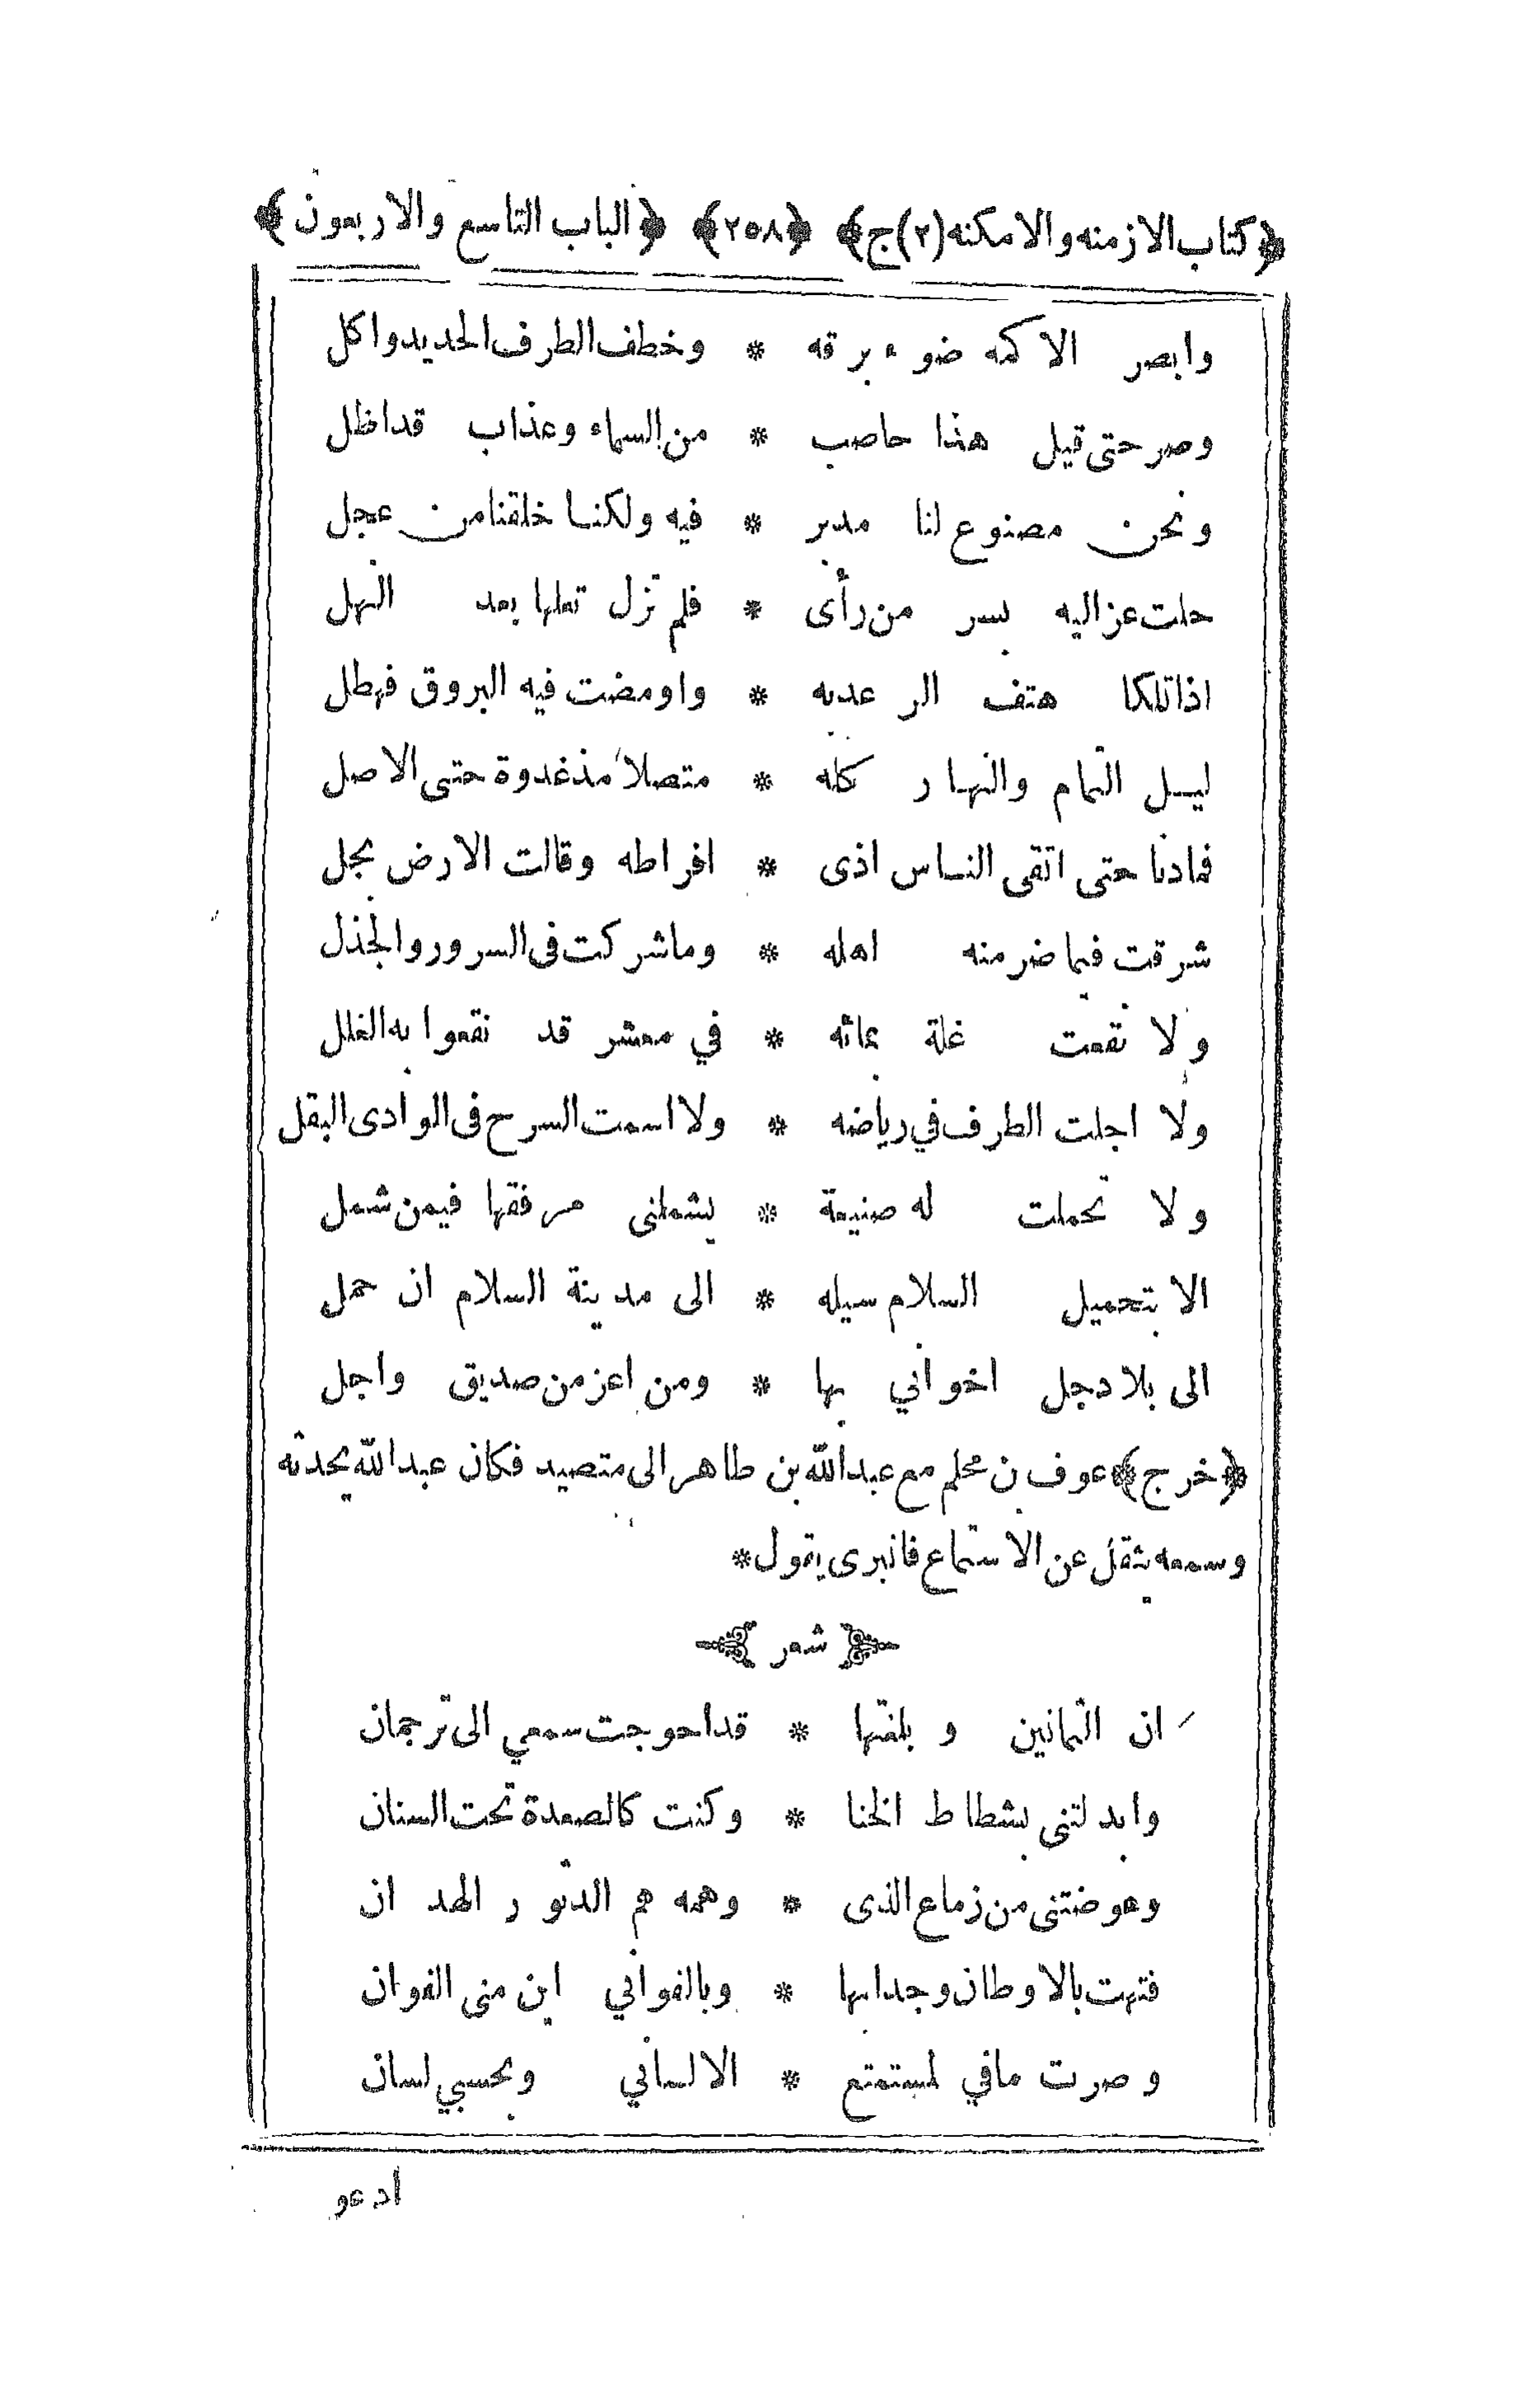 ﴿كتاب الازمنه والامكنه (٢)ج﴾ ﴿٢٥٨﴾ ﴿الباب التاسع والاربعون﴾
وابصر الاكمه ضوء برقه * وخطف الطرف الحديد واكل
وصر حتى قيل هذا حاصب * من السماء وعذاب قد اظل
ونحن مصنوع لنا مدبر * فيه ولكنا خلقنا من عجل
حلت عزاليه بسر من رأى * فلم تزل تعلها بعد النهل
اذا تلكا هتف الرعد به * واومضت فيه البروق فهطل
ليل التمام والنهار كله * متصلا مذ غدوة حتى الاصل
فمادنا حتى اتقى الناس اذى * افراطه وقالت الارض بجل
شرقت فيما ضر منه اهله * وما شركت فى السرور والجذل
ولا نقعت غلة بمائه * في معشر قد نقعوا به الغلل
ولا اجلت الطرف في رياضه * ولا اسمت السرح فى الوادى البقل
ولا تحملت له صنيعة * يشملنى مرفقها فيمن شمل
الا بتحميل السلام سيله * الى مدينة السلام ان حمل
الى بلا دجل اخوانى بها * ومن اعز من صديق واجل
﴿خرج﴾ عوف بن محلم مع عبدالله بن طاهر الى متصيد فكان عبدالله يحدثه
وسمعه يثقل عن الاستماع فانبرى يقول *
شعر
ان الثمانين وبلغتها * قد احوجت سمعي الى ترجمان
وابدلتنى بشطاط الخنا * وكنت كالصعدة تحت السنان
وعوضتنى من زماع الذى * وهمه هم الدثور الهدان
فتهت بالاوطان وجدا بها * وبالغواني اين منى الغوان
وصرت مافي لمستمتع * الا لساني وبحسبي لسان
ادعو